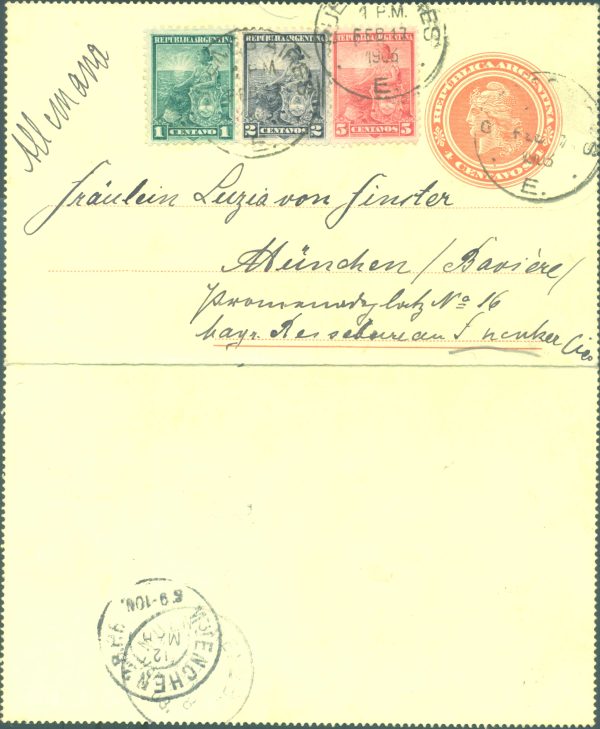 REPUBLICA ARGENTINA
1 CENTAVO 1
REPUBLICA ARGENTINA
2 CENTAVOS 2
REPUBLICA ARGENTINA
5 CENTAVOS 5
1 P.M.
FEB 1906
E.
REPUBLICA ARGENTINA
4 CENTAVOS
E.
E.
Allemana
Fräulein Luzia von Finster
München / Bavière /
Promenadeplatz No 16
bayr. Reisebureau Cie
MUENCHEN
9-10N.
12
MAR